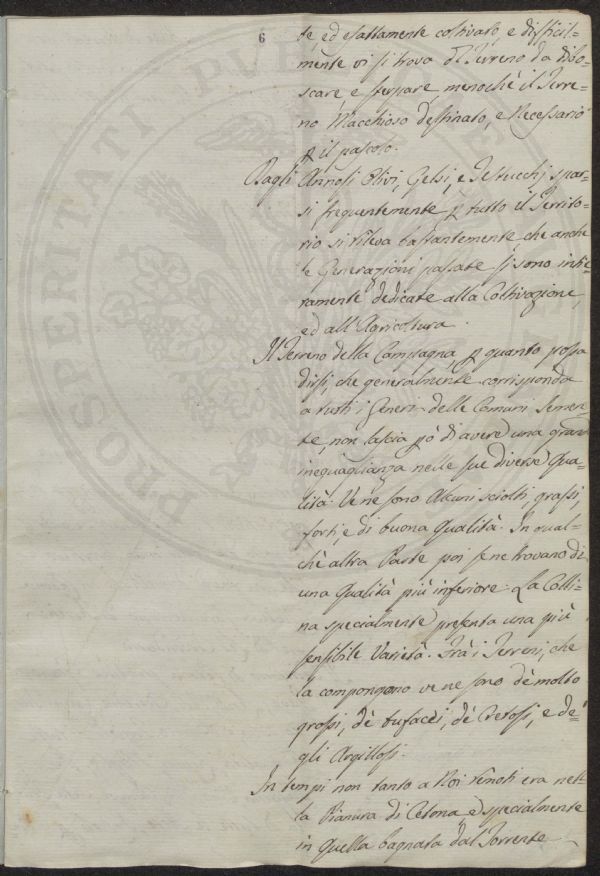 6
te, ed esattamente coltivato, e difficil=
mente vi si trova di Terreno da disbo=
scare e sterpare menochè il Terre=
no Macchioso destinato, e Necessario
p il pascolo.
Dagli Annosi Olivi, Gelsi, e Testucchj spar=
si frequentemente p tutto il Territo=
rio si rileva bastantemente che anche
le Generazioni passate si sono intie=
ramente dedicate alla Coltivazione,
ed all'Agricoltura.
Il Terreno della Campagna, p quanto possa
dirsi, che generalmente corrisponda
a tutti i Generi delle Comuni Semen=
te, non lascia pò di avere una gran
ineguaglianza nelle sue diverse Qua=
lità. Ve ne sono Alcuni sciolti, grassi,
forti, e di buona Qualità. In qual=
chè altra Parte poi se ne trovano di
una Qualità più inferiore. La Colli=
na specialmente presenta una più
sensibile Varietà. Trà i Terreni, che
la compongono ve ne sono dè molto
grossi, dè tufacei, dè Cretosi, e de=
gli Argillosi.
In tempi non tanto a Noi remoti era nel=
la Pianura di Cetona e specialmente
in Quella bagnata dal Torrente
PROSPERITATI PUBLICAE